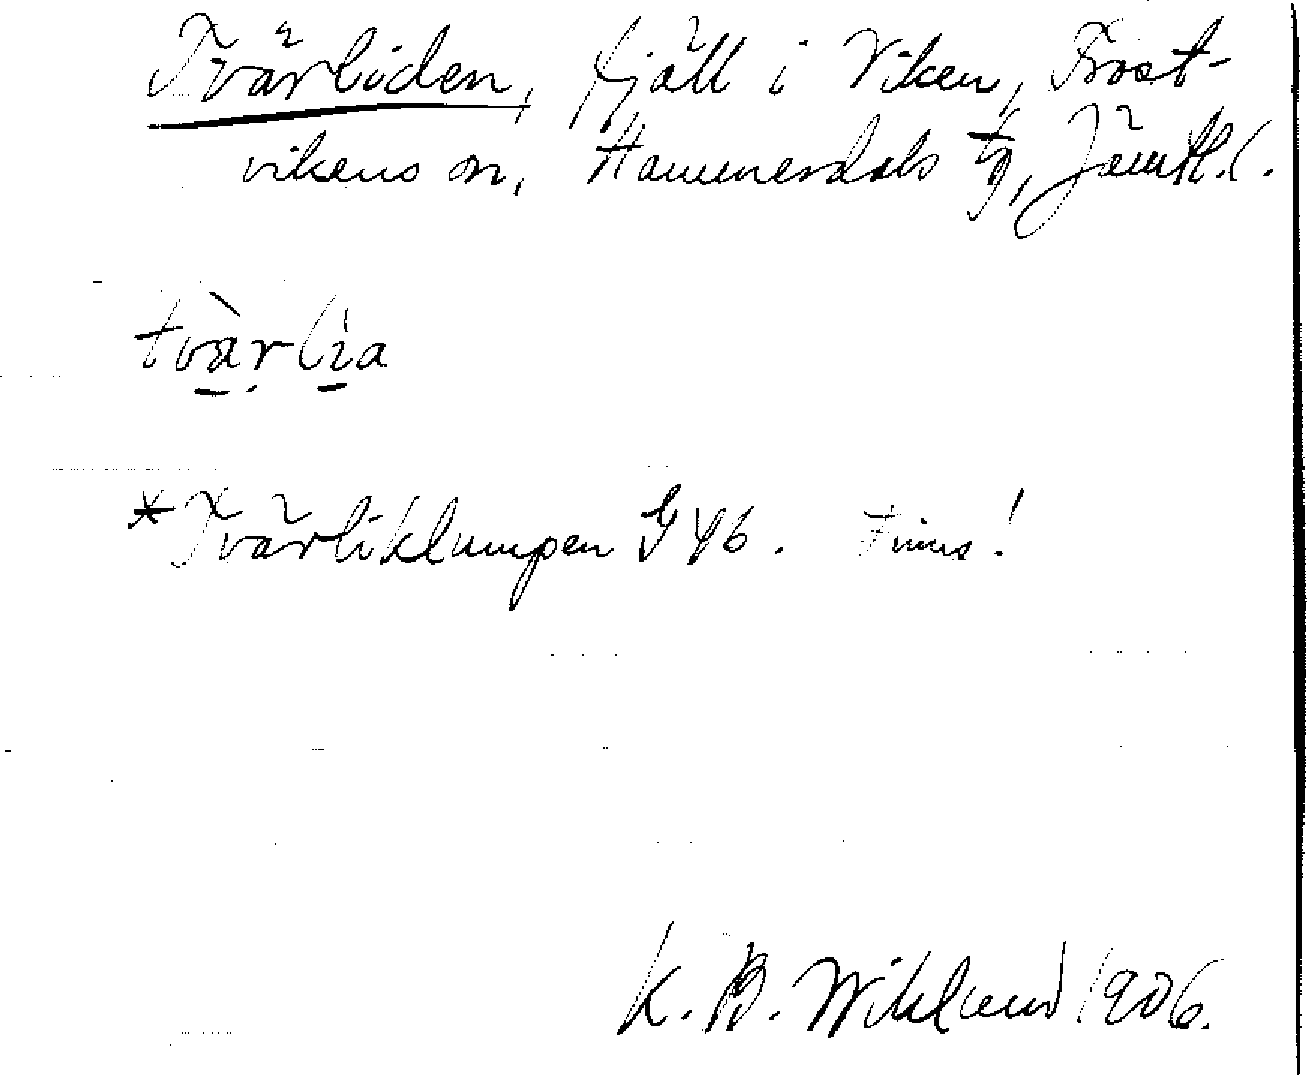 Tvärliden, fjäll i Viken, Frost-
vikens sn, Hammerdals tg, Jämtl. l.
tvàrlìa
*Tvärliklumpen G 46. Finns!
K. B. Wiklund 1906.